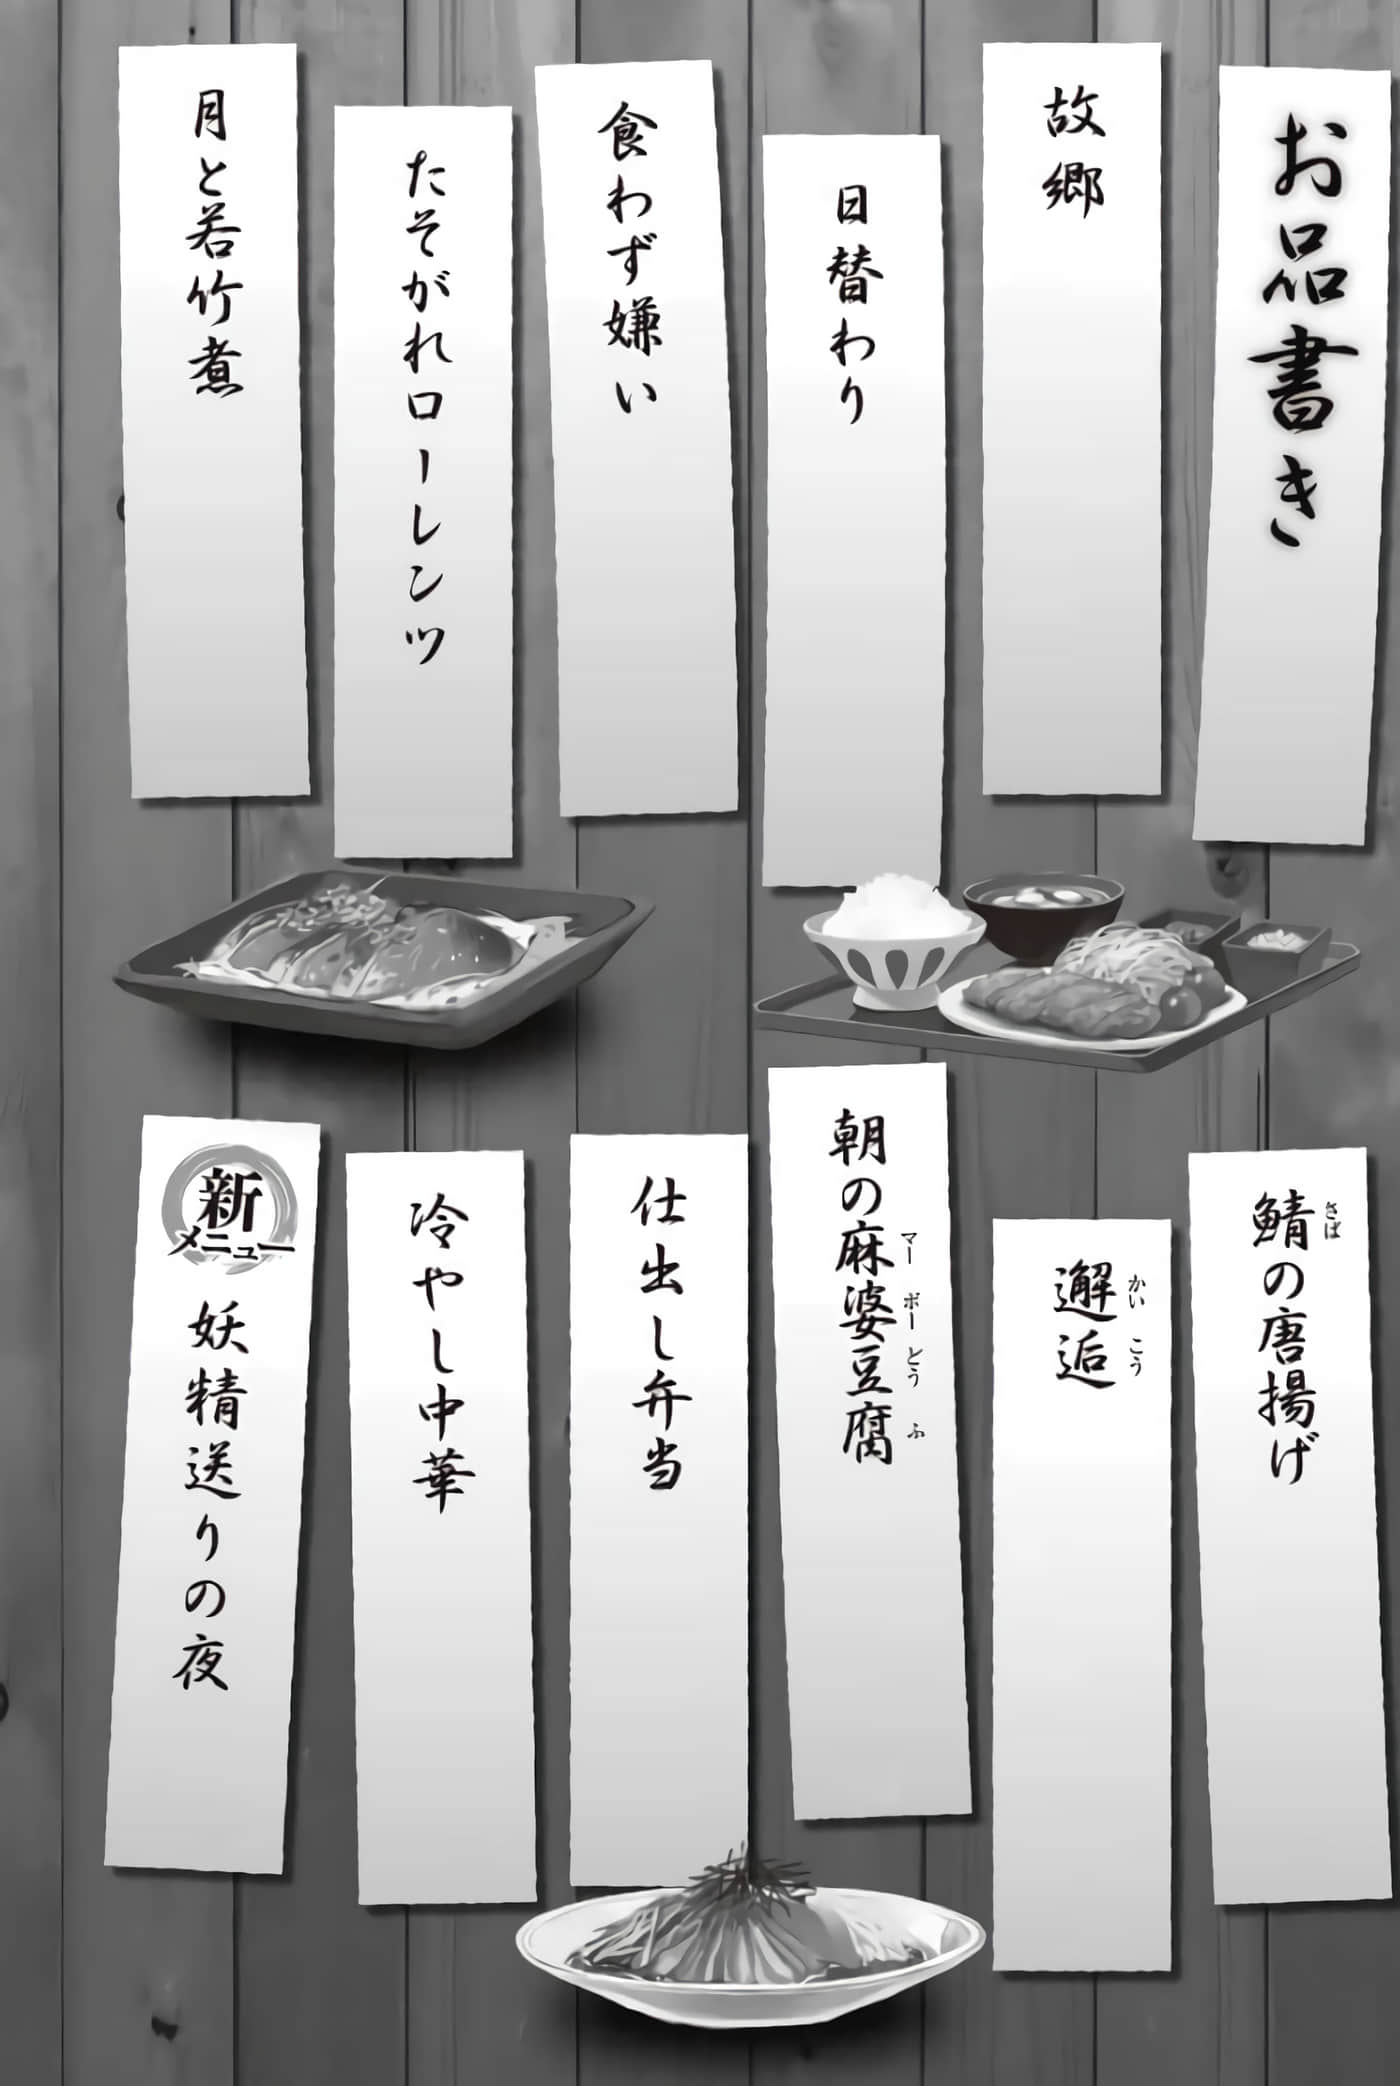 お品書き
故郷
日替わり
食わず嫌い
たそがれローレンツ
月と若竹煮
鯖の唐揚げ
さば
邂逅
かいこう
朝の麻婆豆腐
マーボーどうふ
仕出し弁当
冷やし中華
新
メニュー
妖精送りの夜